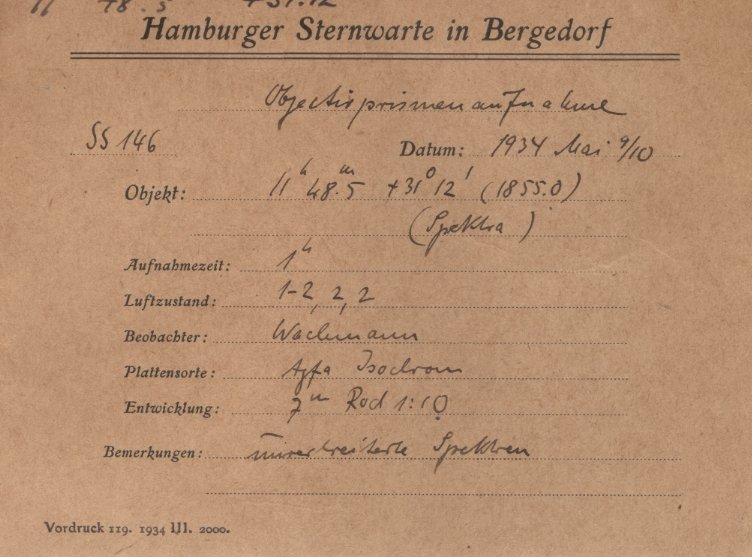 11 48.5 +31.12
Hamburger Sternwarte in Bergedorf
Objectivprismenaufnahme
SS 146 Datum: 1934 Mai 9/10
Objekt: 11ʰ 48ᵐ.5 +31° 12' (1855.0)
(Spektra)
Aufnahmezeit: 1ʰ
Luftzustand: 1-2, 2, 2
Beobachter: Wachmann
Plattensorte: Agfa Isochrom
Entwicklung: 7ᵐ Rod 1:10
Bemerkungen: unverbreiterte Spektren
Vordruck 119. 1934 III. 2000.